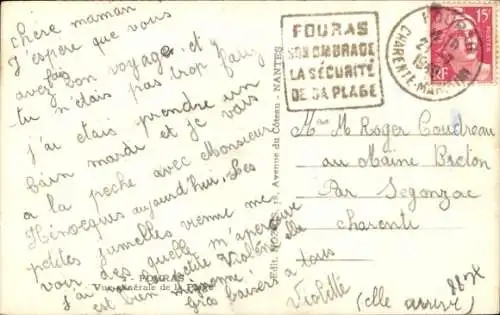 chère maman
J'espère que vous
avez fais bon voyage et
tu n'étais pas trop
j'ai étais prendre un
bain mardi et je vais
a la peche avec Monsieur
aujourd'hui. Les
petites jumelles vienne me
voir des quelle m'aperçoive
J'ai la petite Violene elle
est bien mignonne!
Gros baisers a tous
Violette (elle arrive)
FOURAS
Vue générale de la Plage
Edit. NOZAIS, 18, Avenue du Côteau - NANTES
FOURAS
SON OMBRAGE
LA SÉCURITÉ
DE SA PLAGE
FOURAS
CHARENTE-MARITIME
15F
RF
M Roger Coudreau
au Maine Breton
Par Segonzac
charente